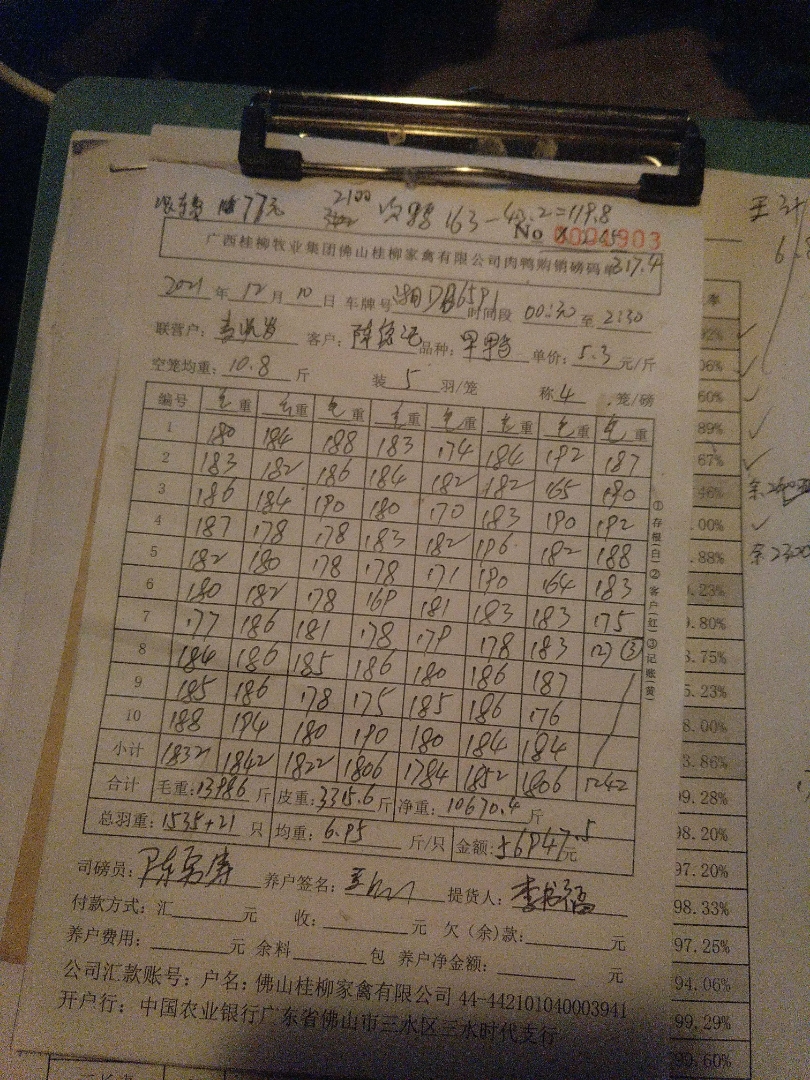 77元 2100 163-43.2=119.8
No 0004903
广西桂柳牧业集团佛山桂柳家禽有限公司肉鸭购销磅码单 217.4
2021年12月10日 车牌号 时间段 00:30至2:30
联营户: 客户: 品种: 单价:5.3元/斤
空笼均重:10.8斤 装5羽/笼 称4笼/磅
编号 毛重 毛重 毛重 毛重 毛重 毛重 毛重 毛重
1 180 184 188 183 174 184 192 187
2 183 182 186 184 182 182 165 190
3 186 184 190 180 170 183 190 192
4 187 178 178 183 182 196 182 188
5 182 180 178 178 171 190 164 183
6 180 182 178 169 181 183 183 175
7 177 186 181 178 179 178 183 127 ③
8 184 186 185 186 180 186 187
9 185 186 178 175 185 186 176
10 188 194 180 190 180 184 184
小计 1832 1842 1822 1806 1784 1852 1806 1242
合计 毛重:13986斤 皮重:3315.6斤 净重:10670.4斤
总羽重:1535+21只 均重:6.95斤/只 金额:56947.5元
司磅员: 养户签名: 提货人:
付款方式:汇 元 收: 元 欠(余)款: 元
养户费用: 元 余料 包 养户净金额: 元
公司汇款账号:户名:佛山桂柳家禽有限公司 44-442101040003941
开户行:中国农业银行广东省佛山市三水区三水时代支行
①存根(白)②客户(红)③记账(黄)
率
92%
06%
60%
89%
67%
46%
.00%
.88%
.23%
.80%
8.75%
5.23%
8.00%
3.86%
99.28%
98.20%
97.20%
98.33%
97.25%
94.06%
99.29%
99.60%
余2300